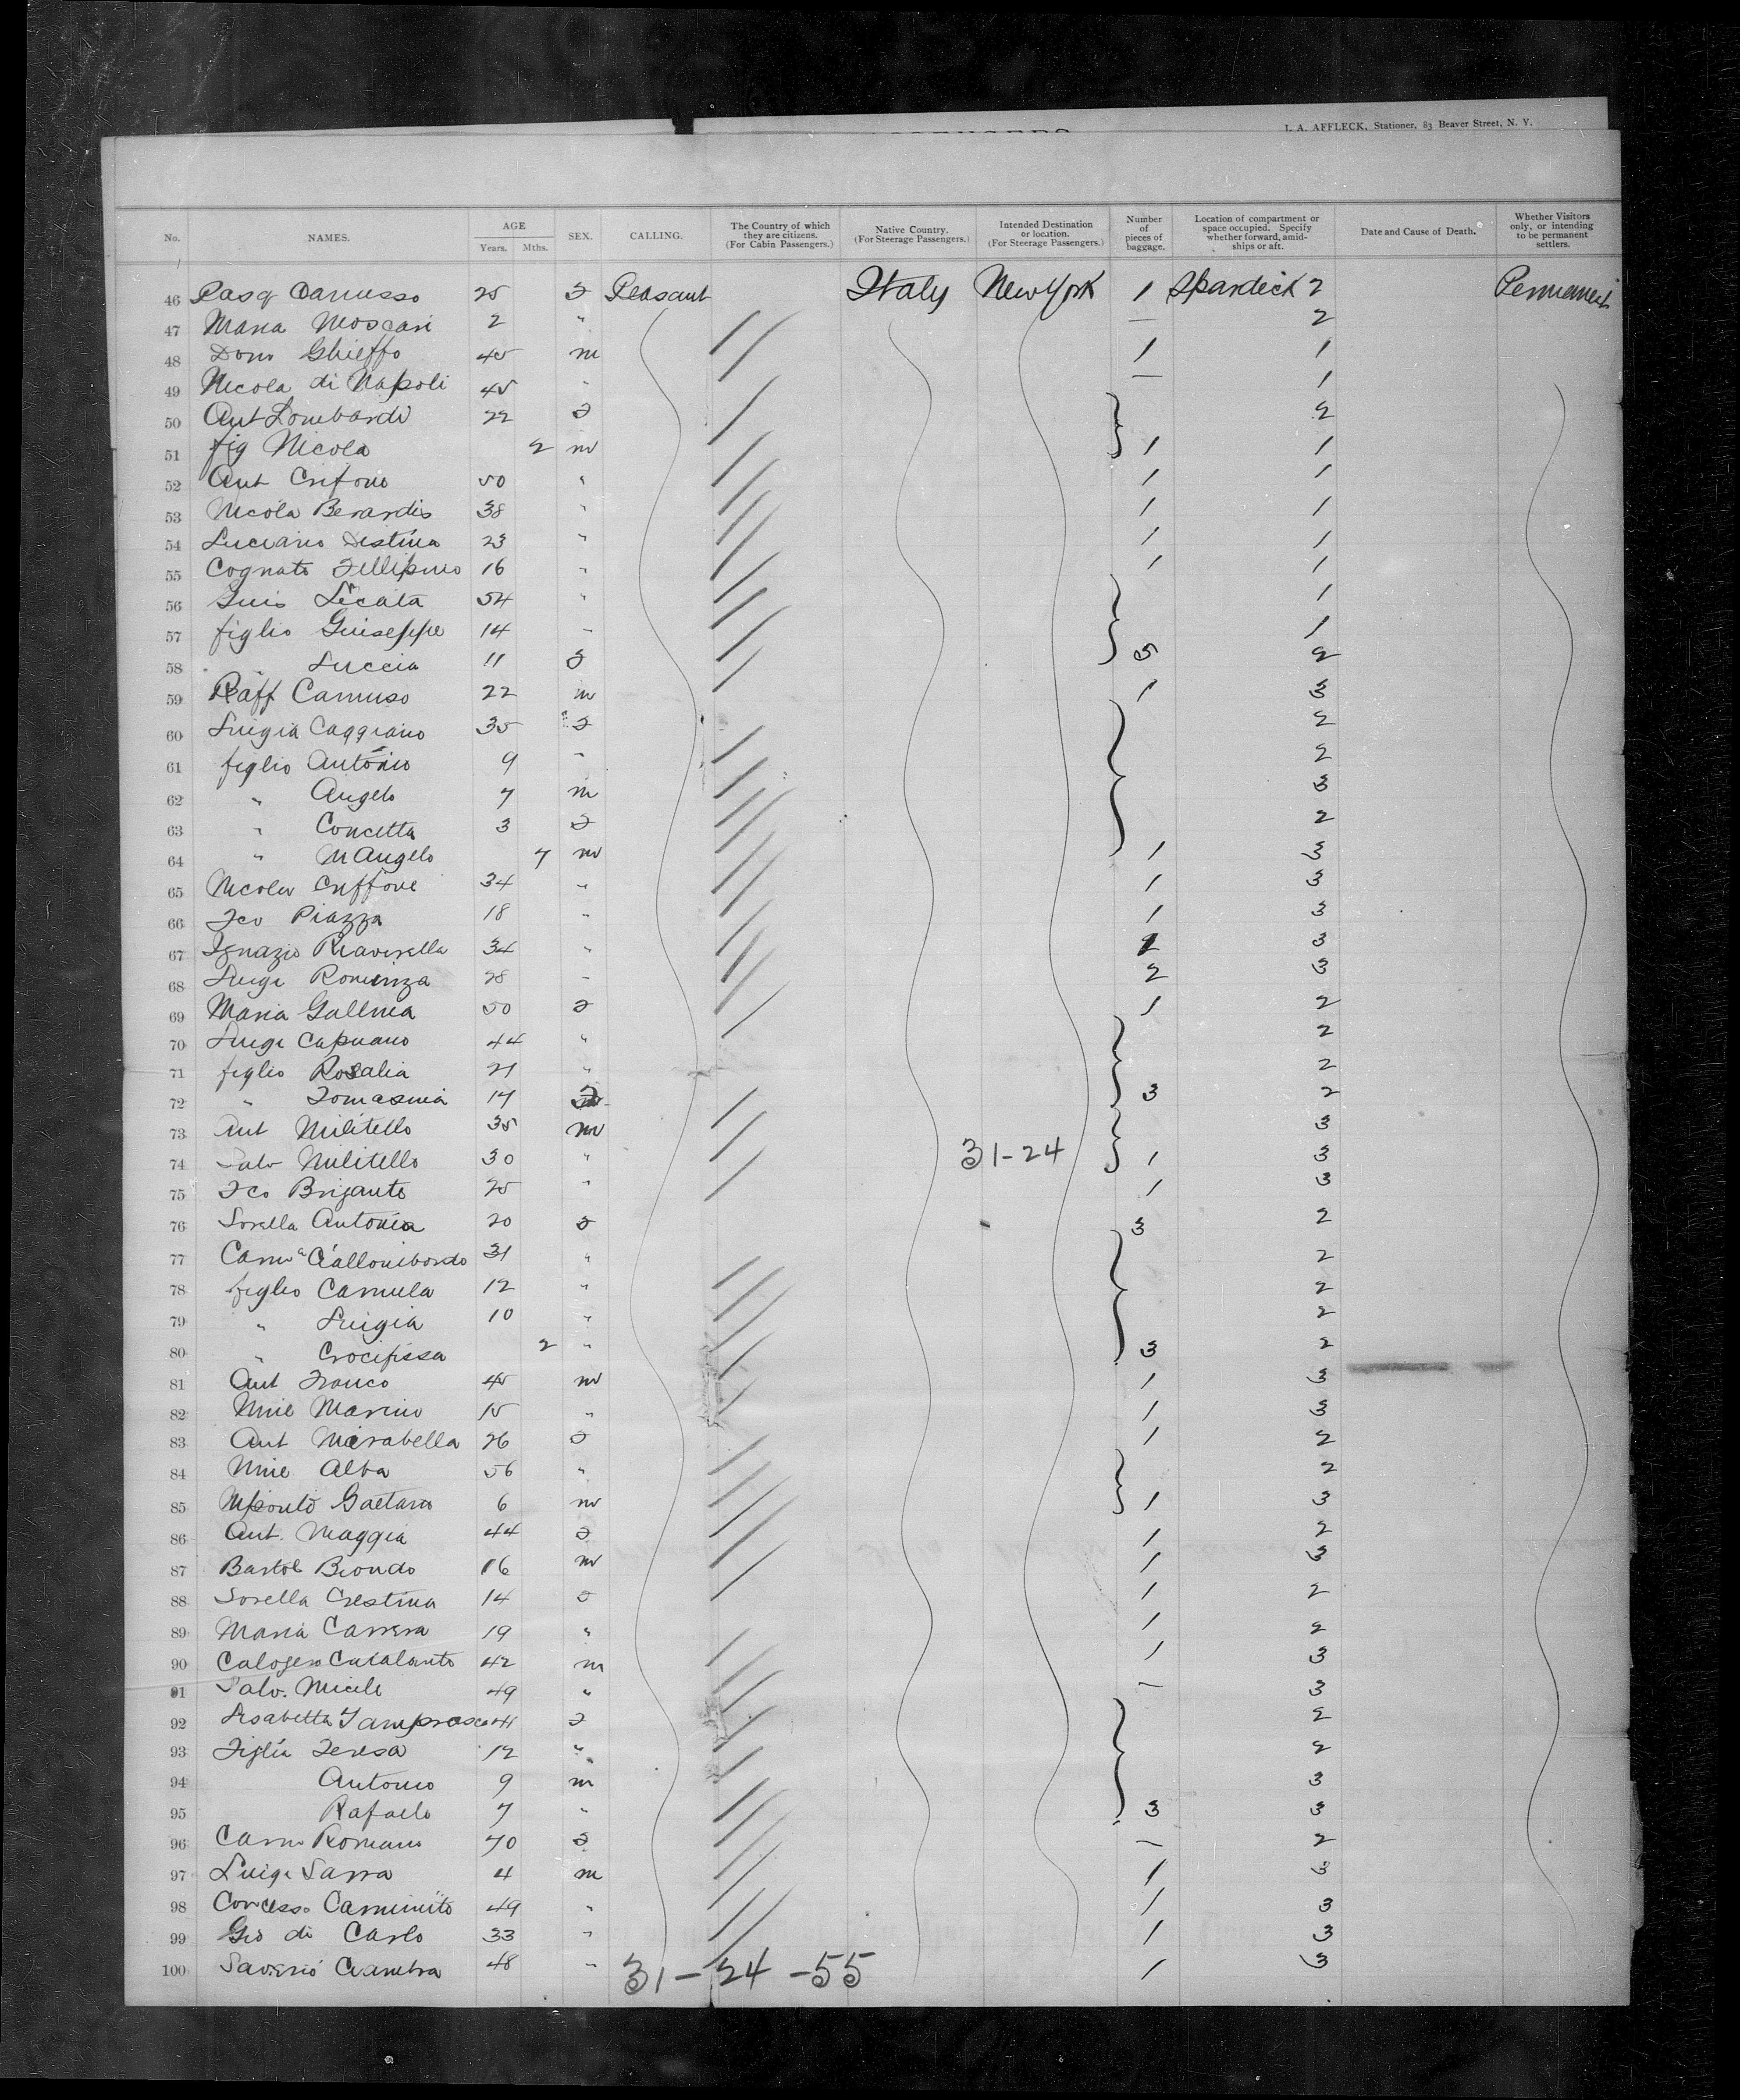 J. A. AFFLECK, Stationer, 83 Beaver Street, N. Y.
No. NAMES. AGE Years. Mths. SEX. CALLING. The Country of which they are citizens. (For Cabin Passengers.) Native Country. (For Steerage Passengers.) Intended Destination or location. (For Steerage Passengers.) Number of pieces of baggage. Location of compartment or space occupied. Specify whether forward, amidships or aft. Date and Cause of Death. Whether Visitors only, or intending to be permanent settlers.
46 Pasq Carusso 25 Peasant Italy New York 1 Spardeck 2 Permanent
47 Maria Moscari 2 " — 2
48 Dom Ghieffo 45 m 1 1
49 Nicola di Napoli 45 " — 1
50 Ant Lombardi 22 2
51 fig Nicola 2 m 1 1
52 Ant Crifono 50 " 1 1
53 Nicola Berardis 38 " 1 1
54 Luciano Distina 23 " 1 1
55 Cognato Fillipino 16 " 1 1
56 Luis Licata 54 " 1
57 figlio Guiseppe 14 " 1
58 " Luccia 11 5 2
59 Raff Camuso 22 m 1 3
60 Luigia Caggiano 35 2
61 figlio Antonio 9 " 2
62 " Angelo 7 m 3
63 " Concetta 3 2
64 " M Angelo 7 m 1 3
65 Nicola 34 " 1 3
66 Fco Piazza 18 " 1 3
67 Ignazio 34 " 3
68 Luigi 28 " 2 3
69 Maria Gallina 50 1 2
70 Luigi Capuano 44 " 2
71 figlio Rosalia 21 " 2
72 " Tomasina 17 3 2
73 Ant Militello 35 m 3
74 Salv Militello 30 " 31-24 1 3
75 Fco Brigante 25 " 1 3
76 Sorella Antonia 20 3 2
77 Carm 31 " 2
78 figlio Camula 12 " 2
79 " Luigia 10 " 2
80 " Crocifissa 2 " 3 2
81 Ant Franco 45 m 1 3
82 Marino 15 " 1 3
83 Ant Mirabella 26 1 2
84 Alba 56 " 2
85 Gaetano 6 m 1 3
86 Ant. Maggia 44 1 2
87 Bartol Biondo 16 m 1 3
88 Sorella Crestina 14 1 2
89 Maria Carrera 19 " 1 2
90 Calogero Catalanto 42 m 1 3
91 Salv. Miceli 49 " — 3
92 Lisabetta 41 2
93 Figlia Teresa 12 " 2
94 Antonio 9 m 3
95 Rafaelo 7 " 3 3
96 Carm Romano 70 — 2
97 Luigi Sarra 4 m 1 3
98 Caminito 49 " 1 3
99 Gio di Carlo 33 " 1 3
100 Saverio Ciambra 48 " 31-24-55 1 3